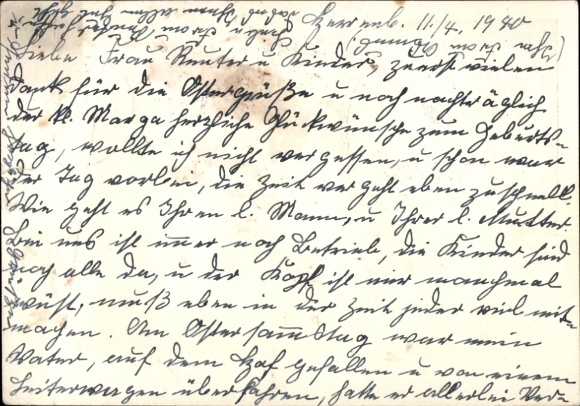 Herrenb. 11/4. 1940
Liebe Frau Reuter u Kinder, zuerst vielen
Dank für die Ostergrüße u noch nachträglich
der kl. Marga herzliche Glückwünsche zum Geburts-
tag, wollte ich nicht vergessen, u schon war
der Tag vorbei, die Zeit vergeht eben zu schnell.
Wie geht es Ihrem l. Mann, u Ihrer l. Mutter
Bei uns ist immer noch Betrieb, die Kinder sind
noch alle da, u der Kopf ist mir manchmal
wüst, muß eben in der Zeit jeder viel mit-
machen. Am Ostersamstag war mein
Vater, auf dem Hof gefallen u von einem
Leiterwagen überfahren, hatte er allerlei Ver-